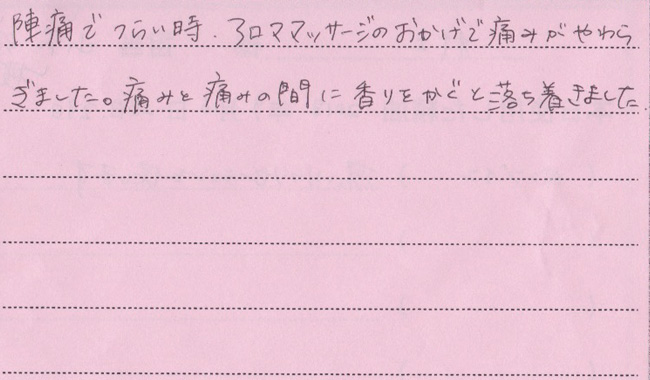 陣痛でつらい時、アロママッサージのおかげで痛みがやわら
ぎました。痛みと痛みの間に香りをかぐと落ち着きました